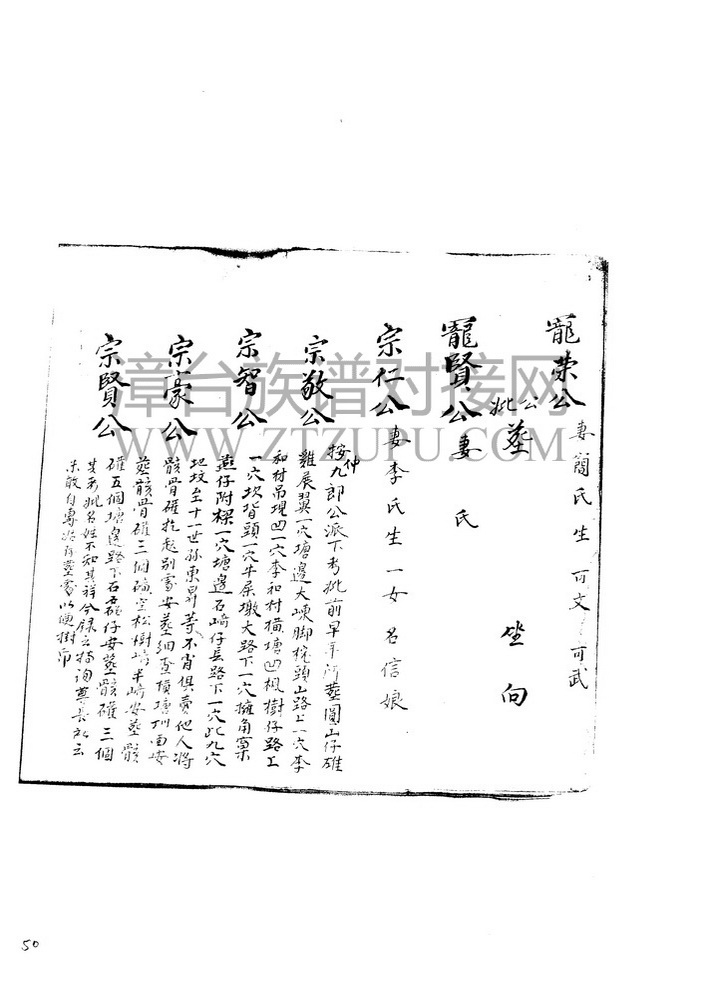 寵荣公妻簡氏生可文可武
公
妣墓 坐向
寵賢公妻 氏
宗仁公妻李氏生一女名信娘
宗敬公
宗智公
宗豪公
宗賢公
按仲九郎公派下考妣前早年所葬圓山仔碓
雞展翼一穴塘邊大崠脚梘頭山路上一穴李
和村吊現凹一穴李和村横塘凹楓樹仔路上
一穴坎背頭一穴牛屎墩大路下一穴擁角窠
燕仔附樑一穴塘邊石崎仔長路下一穴此九穴
地坟至十一世孫東昇等不肖俱賣他人將
骸骨碓挖起别處安葬細查横塘 面安
葬骸骨碓三個 空松樹崎半崎安葬骸
碓五個塘邊路下石 仔安葬骸碓三個
其考妣名姓不知其祥今録之待詢尊長 云
未敢自專 葬處以便樹
漳台族谱对接网
WWW.ZTZUPU.COM
50